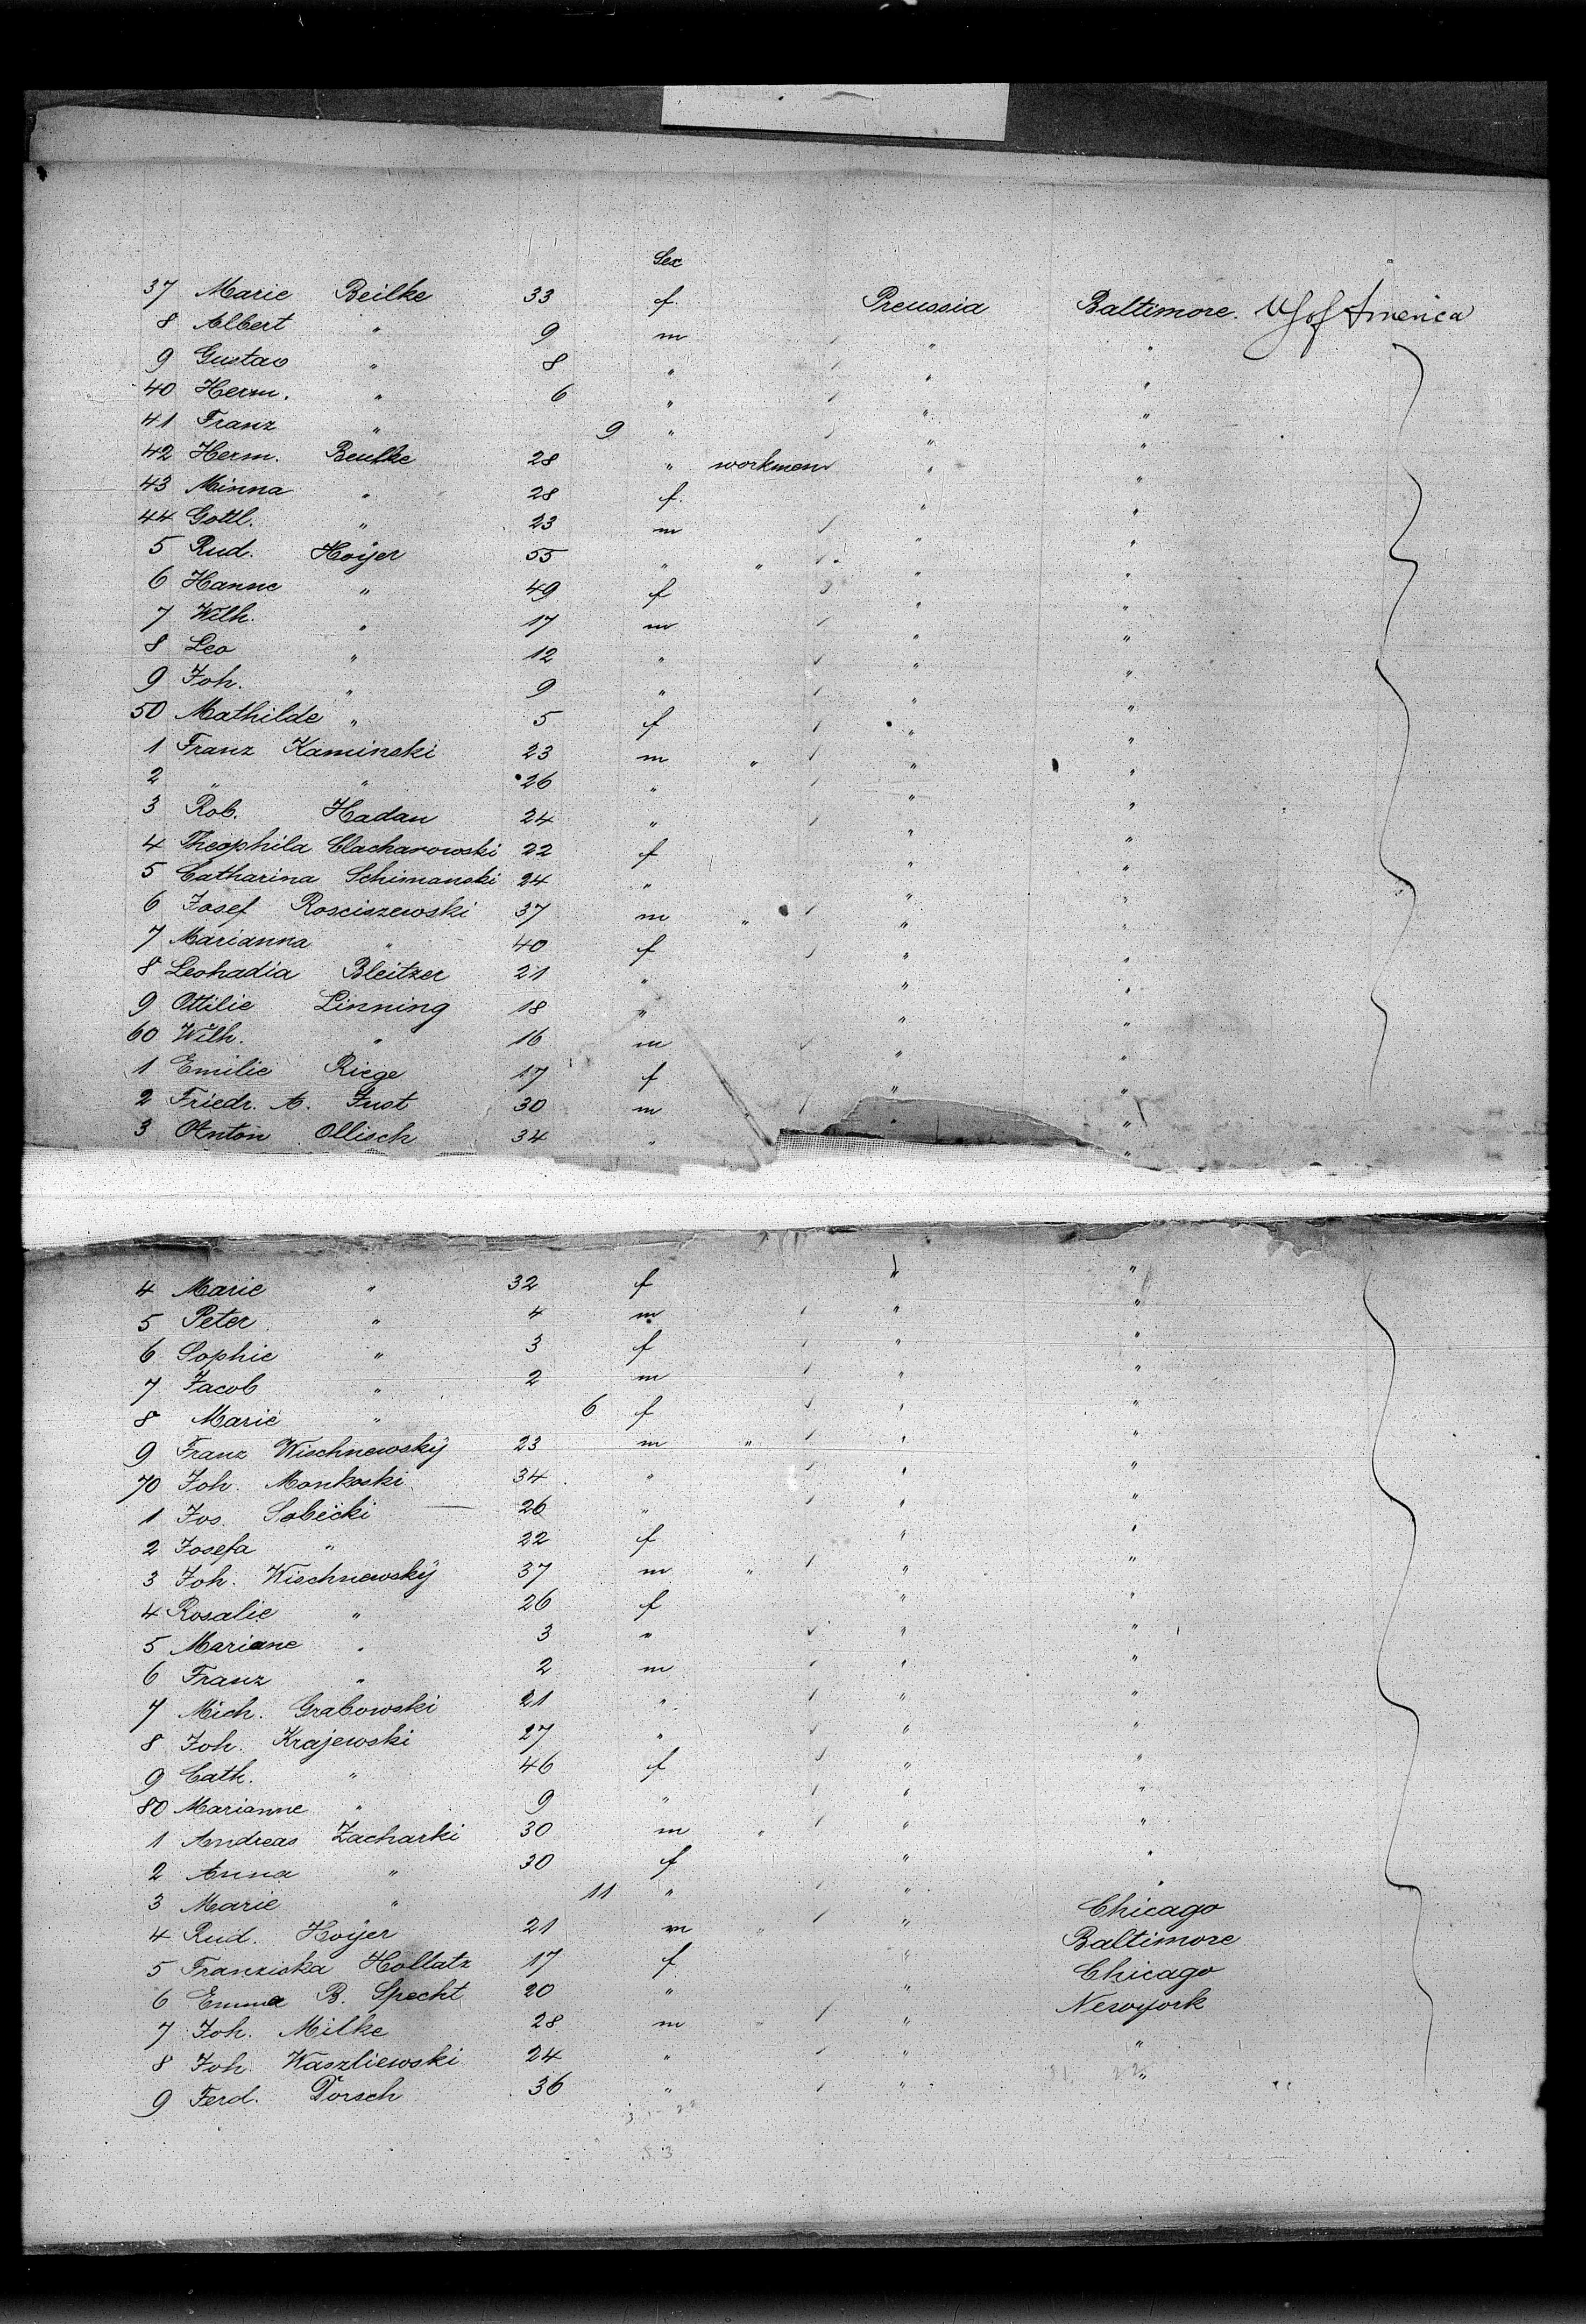 Sex
37 Marie Beilke 33 f. Preussia Baltimore. US of America
8 Albert " 9 m " "
9 Gustav " 8 " " "
40 Herm. " 6 " " "
41 Franz " 9 " " "
42 Herm. Beulke 28 " workmen " "
43 Minna " 28 f. " "
44 Gottl. " 23 m " "
5 Rud. Hoijer 55 " " " "
6 Hanne " 49 f " "
7 Wilh. " 17 m " "
8 Leo " 12 " " "
9 Joh. " 9 " " "
50 Mathilde " 5 f " "
1 Franz Kaminski 23 m " " "
2 " " 26 " " "
3 Rob. Hadan 24 " " "
4 Theophila Clacharowski 22 f " "
5 Catharina Schimanski 24 " " "
6 Josef Rosciszewski 37 m " " "
7 Marianna " 40 f " "
8 Leohadia Bleitzer 21 " " "
9 Ottilie Linning 18 " " "
60 Wilh. " 16 m " "
1 Emilie Riege 17 f " "
2 Friedr. A. Just 30 m " " "
3 Anton Ollisch 34 " " "
4 Marie " 32 f " "
5 Peter " 4 m " "
6 Sophie " 3 f " "
7 Jacob " 2 m " "
8 Marie " 6 f " "
9 Franz Wischnewsky 23 m " " "
70 Joh. Monkoski 34 " " "
1 Jos. Sobicki 26 " " "
2 Josefa " 22 f " "
3 Joh. Wischnewsky 37 m " " "
4 Rosalie " 26 f " "
5 Mariane " 3 " " "
6 Franz " 2 m " "
7 Mich. Grabowski 21 " " "
8 Joh. Krajewski 27 " " "
9 Cath. " 46 f " "
80 Marianne " 9 " " "
1 Andreas Zacharki 30 m " " "
2 Anna " 30 f " "
3 Marie " 11 " " "
4 Rud. Hoijer 21 m " " Chicago
5 Franziska Hollatz 17 f " Baltimore
6 Emma B. Specht 20 " " Chicago
7 Joh. Milke 28 m " " Newyork
8 Joh. Waszliewski 24 " " "
9 Ferd. Dorsch 36 " " "